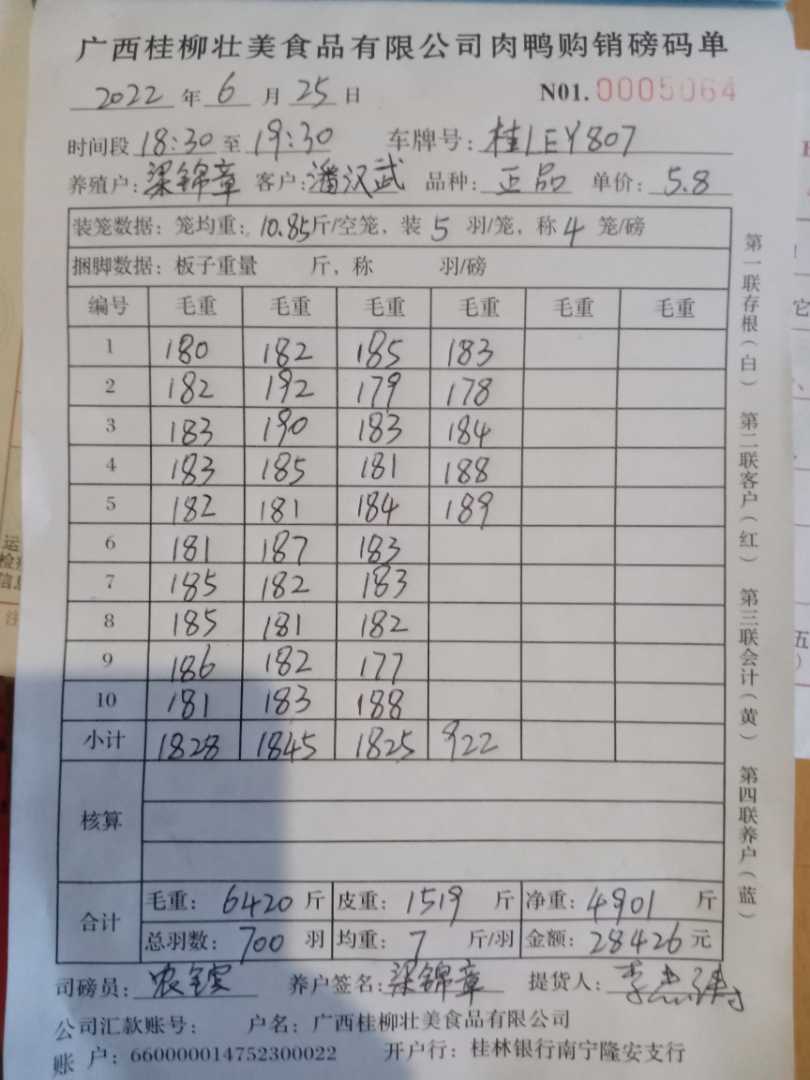 广西桂柳壮美食品有限公司肉鸭购销磅码单
2022 年 6 月 25 日 N01. 0005064
时间段 18:30 至 19:30 车牌号: 桂1EY807
养殖户: 梁锦章 客户: 潘汉武 品种: 正品 单价: 5.8
装笼数据: 笼均重: 10.85斤/空笼, 装 5 羽/笼, 称 4 笼/磅
捆脚数据: 板子重量 斤, 称 羽/磅
编号 毛重 毛重 毛重 毛重 毛重 毛重
1 180 182 185 183
2 182 192 179 178
3 183 190 183 184
4 183 185 181 188
5 182 181 184 189
6 181 187 183
7 185 182 183
8 185 181 182
9 186 182 177
10 181 183 188
小计 1828 1845 1825 922
核算
合计
毛重: 6420 斤 皮重: 1519 斤 净重: 4901 斤
总羽数: 700 羽 均重: 7 斤/羽 金额: 28426 元
司磅员: 养户签名: 梁锦章 提货人:
公司汇款账号: 户名: 广西桂柳壮美食品有限公司
账 户: 660000014752300022 开户行: 桂林银行南宁隆安支行
第一联存根(白) 第二联客户(红) 第三联会计(黄) 第四联养户(蓝)
运
检疫
信息
注
它
五